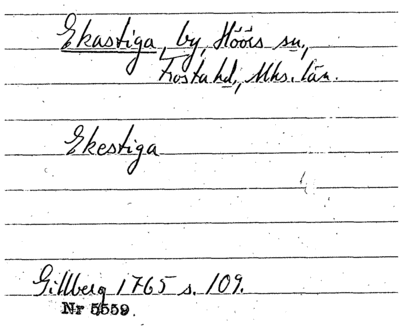 Ekastiga, by, Höörs sn,
Frosta hd, Mhs. län.
Ekestiga
Gillberg 1765 s. 109.
Nr 5559.